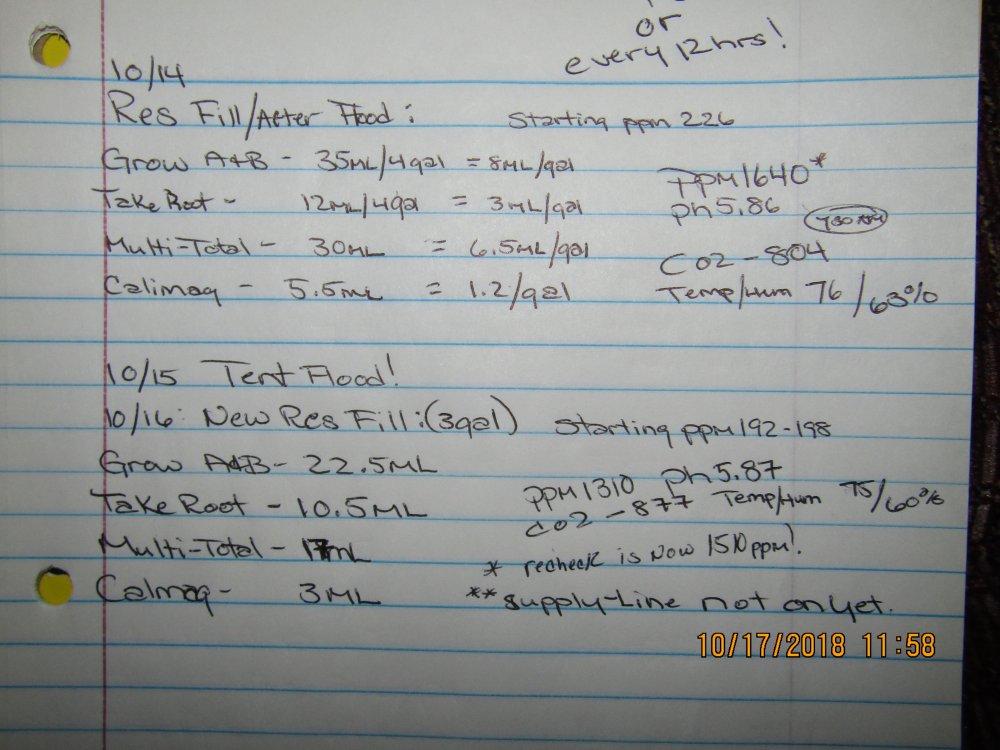 or
every 12hrs!
10/14
Res Fill/After Flood: Starting ppm 226
Grow A+B - 35ML/4gal = 8ML/gal
ppm 1640*
Take Root - 12ML/4gal = 3ML/gal
ph 5.86
Multi-Total - 30ML = 6.5ML/gal
CO2 - 804
Calimag - 5.5mL = 1.2/gal
Temp/Hum 76/63%
10/15 Tent Flood!
10/16: New Res Fill:(3gal) Starting ppm 192-198
Grow A&B - 22.5ML
ppm 1310 ph 5.87
Take Root - 10.5ML
CO2 - 877 Temp/Hum 75/60%
Multi-Total - 17mL
* recheck is now 1510ppm!
Calmag - 3ML
**supply-Line not on yet.
10/17/2018 11:58